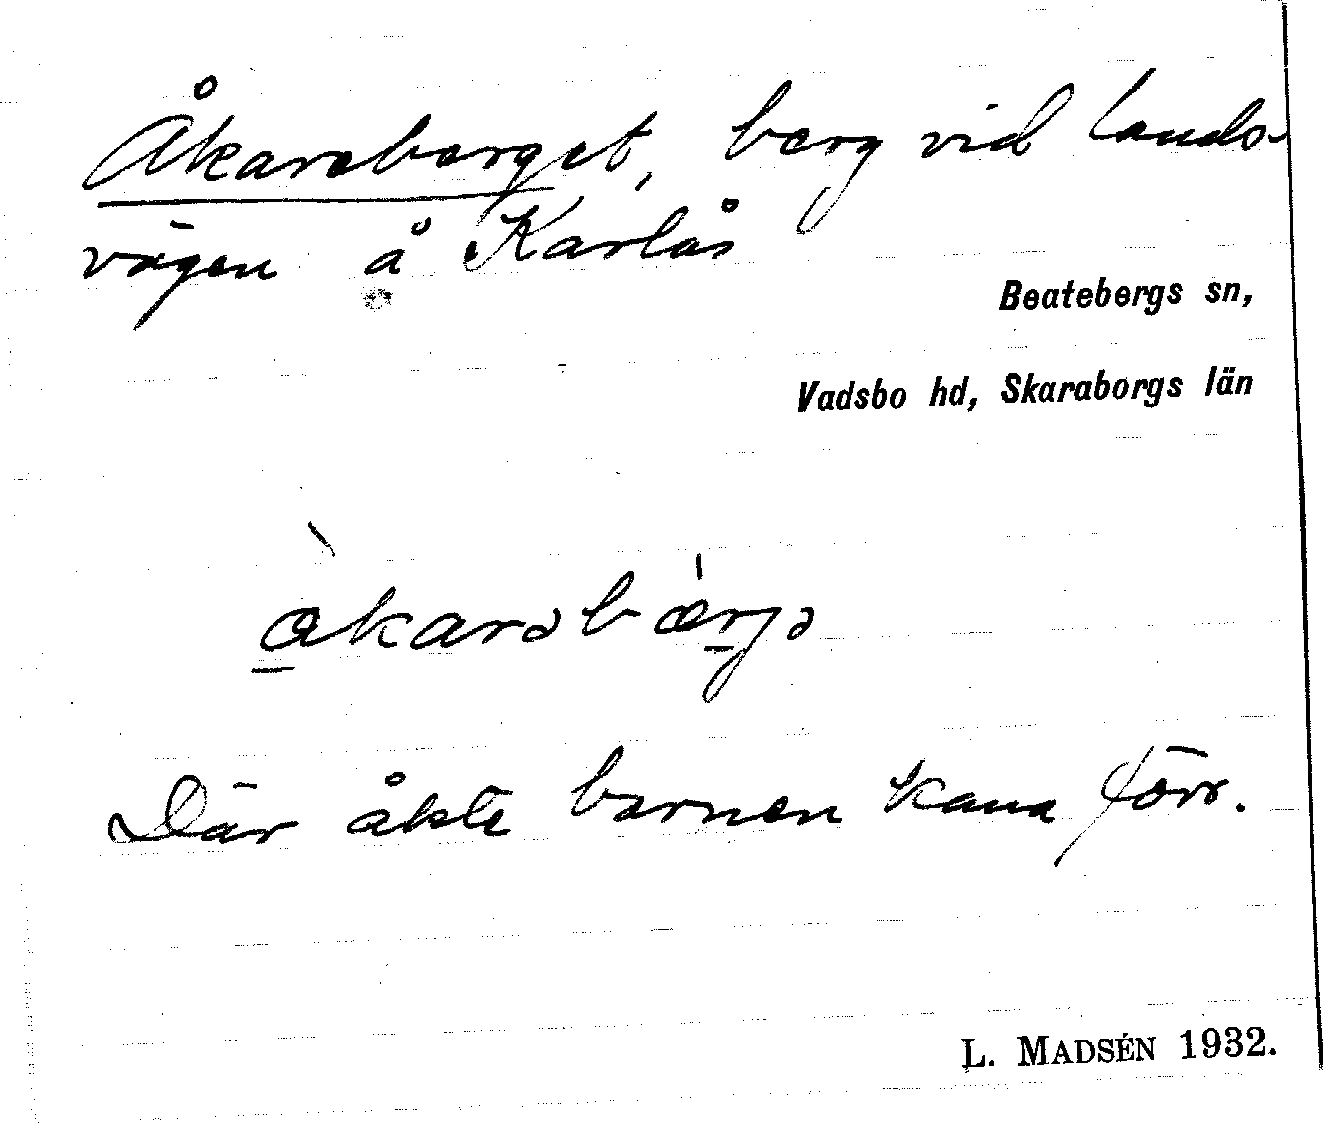 Åkareberget, berg vid lands-
vägen å Karlås
Beatebergs sn,
Vadsbo hd, Skaraborgs län
åkarəbærjə
Där åkte barnen kana förr.
L. MADSÉN 1932.